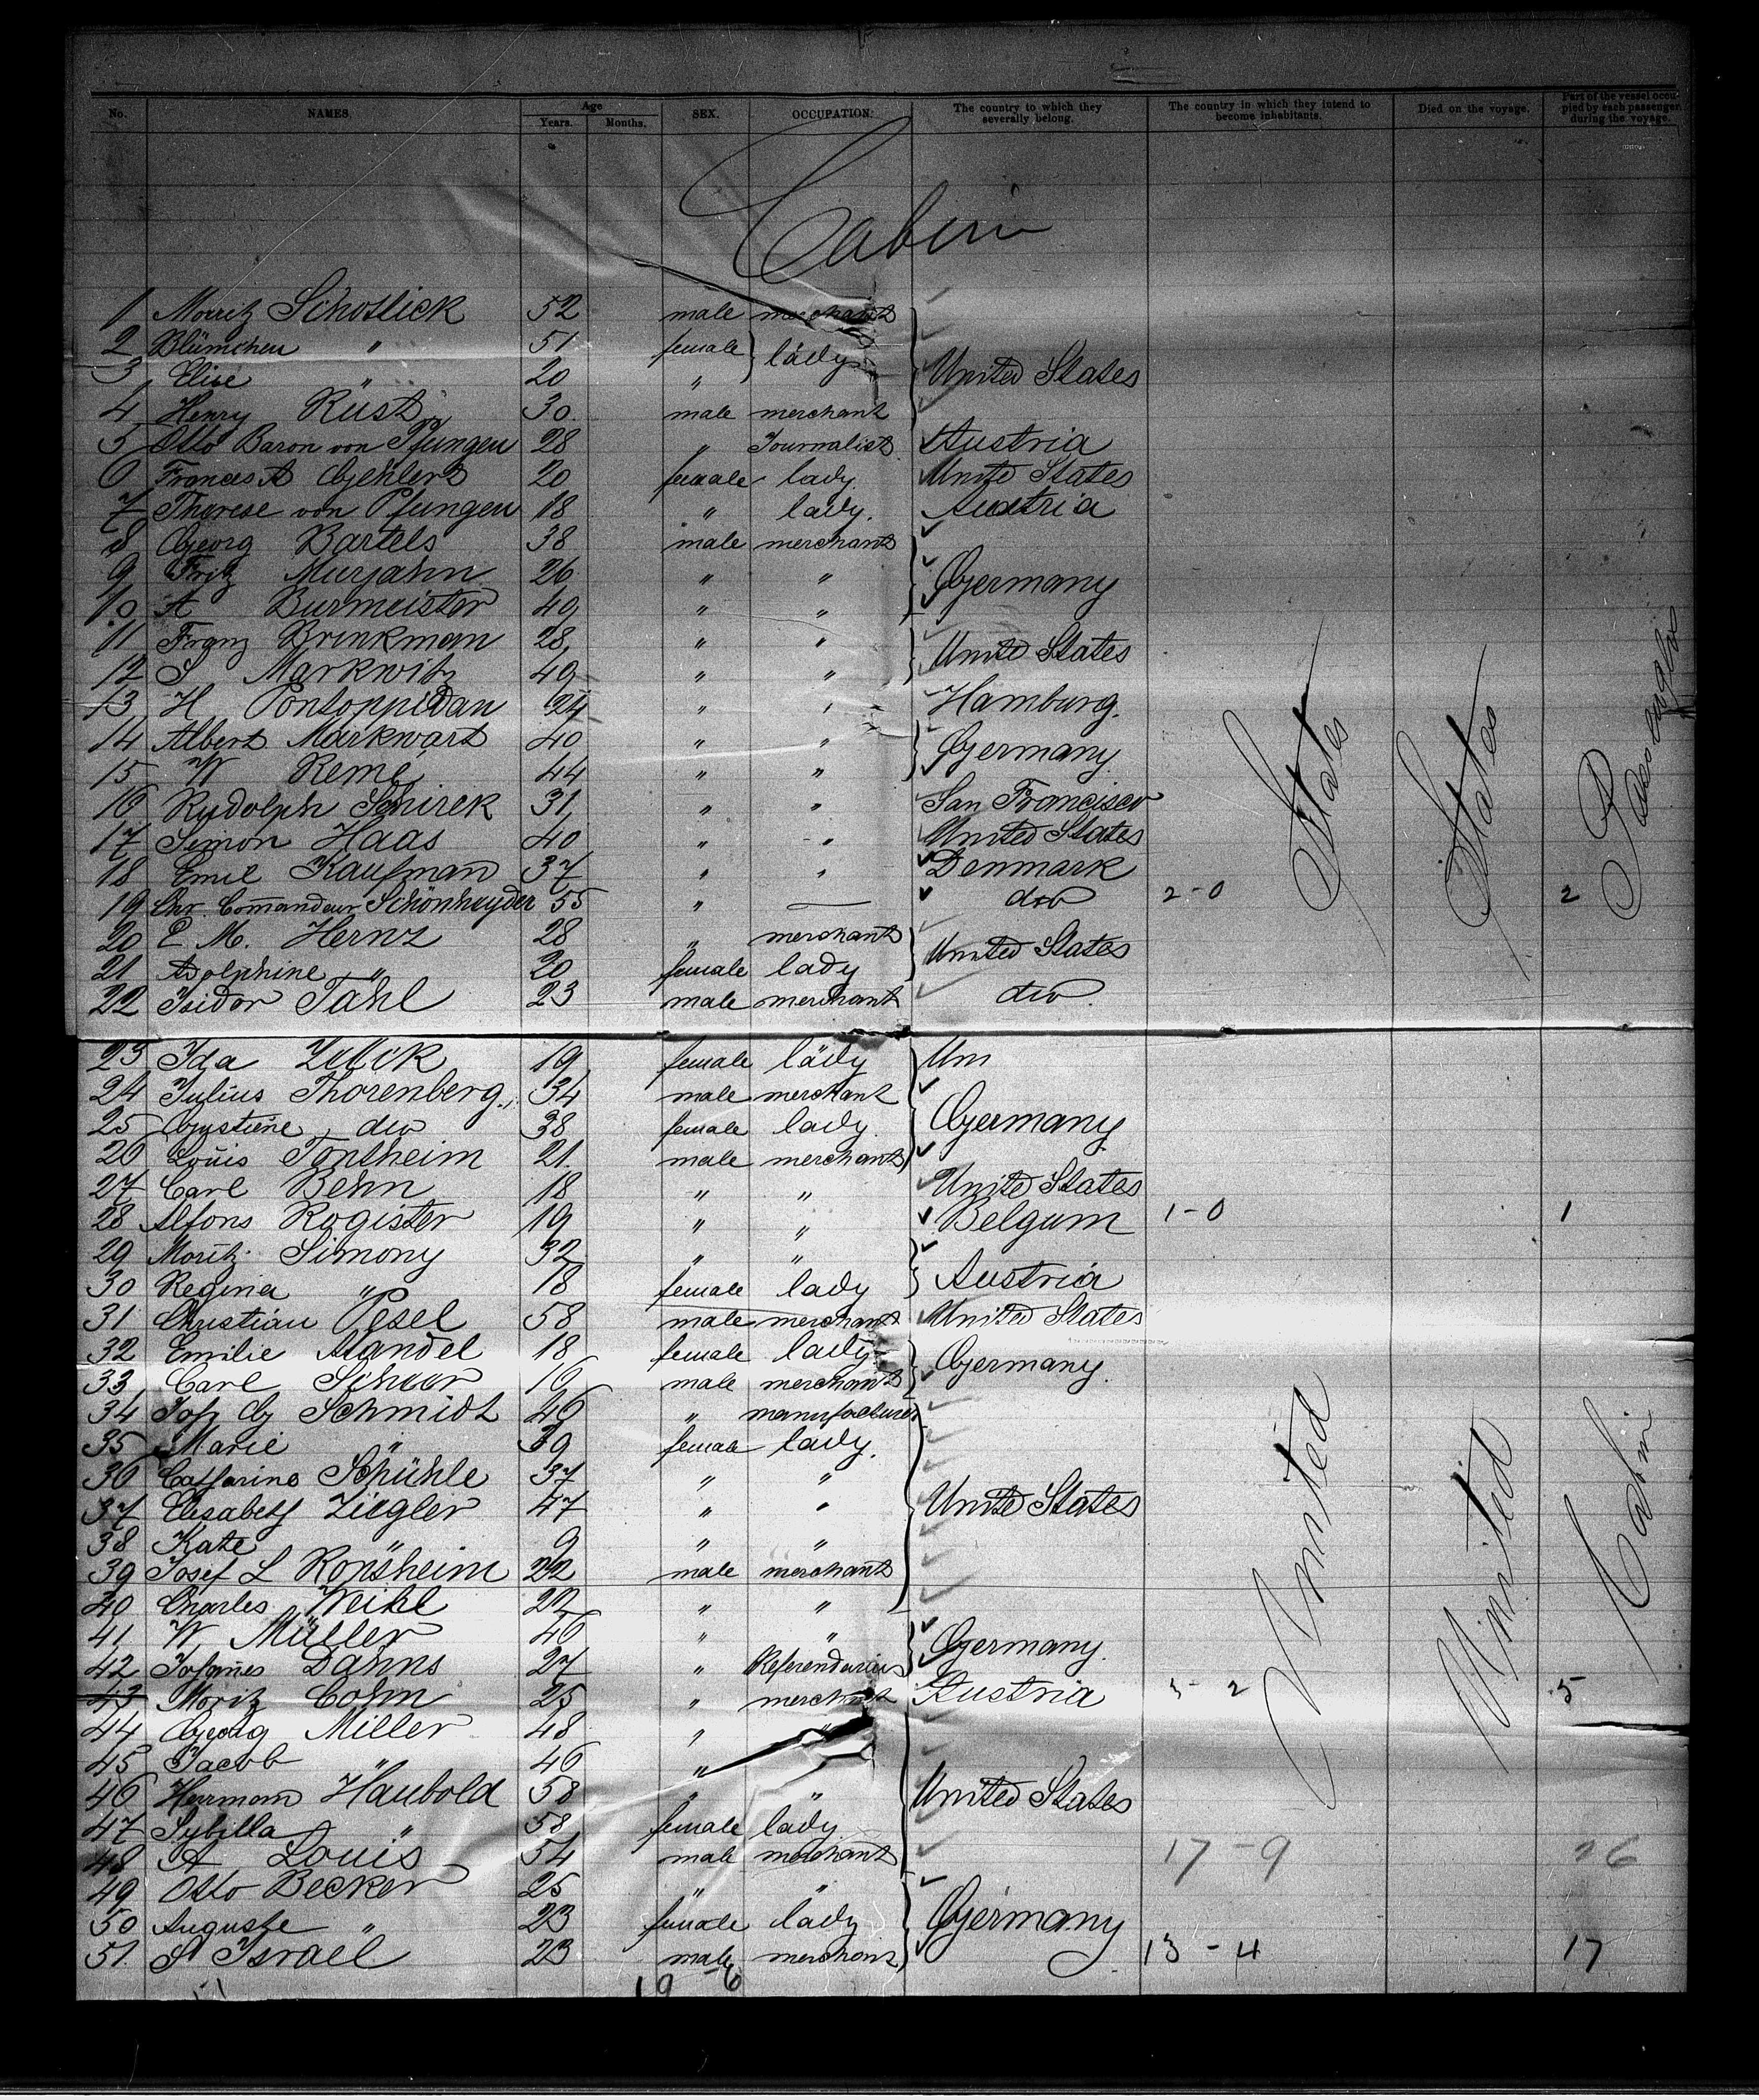 No. NAMES. Age Years. Months. SEX. OCCUPATION. The country to which they severally belong. The country in which they intend to become inhabitants. Died on the voyage. Part of the vessel occupied by each passenger during the voyage.
Cabin
1 Moritz Schoslick 52 male merchant
2 Blümchen " 51 female lady
3 Elise " 20 " United States
4 Henry Rust 30 male merchant
5 Otto Baron von Pfungen 28 " Journalist Austria
6 Frances A Gehlert 20 female lady United States
7 Therese von Pfungen 18 " lady. Austria
8 Georg Bartels 38 male merchant
9 Fritz Murjahn 26 " " Germany
10 A Burmeister 49 " "
11 Franz Brinkman 28 " " United States
12 S Markwitz 49 " "
13 H Pontoppidan 24 " " Hamburg.
14 Albert Markwart 40 " " Germany
15 W Remé 44 " "
16 Rudolph Schirek 31 " " San Francisco
17 Simon Haas 40 " " United States
18 Emil Kaufman 37 " " Denmark
19 Chr. Comandeur Schönheyder 55 " — do 2-0 2
20 E. M. Hernz 28 " merchant United States
21 Adolphine " 20 female lady
22 Isidor Tahl 23 male merchant do.
23 Ida 19 female lady Un
24 Julius Thorenberg. 34 male merchant
25 Gustine do 38 female lady. Germany
26 Louis Tontheim 21 male merchant
27 Carl Behn 18 " " United States
28 Alfons Rogister 19 " " Belgum 1-0 1
29 Moritz Simony 32 " " Austria
30 Regina " 18 female lady
31 Christian Pesel 58 male merchant United States
32 Emilie Mandel 18 female lady Germany.
33 Carl 16 male merchant
34 Joh G Schmidt 46 " manufacturer
35 Marie " 39 female lady.
36 Catharine Schühle 37 " "
37 Elisabeth Ziegler 47 " " United States
38 Kate " 9 " "
39 Josef L Ronsheim 22 male merchant
40 Charles Weihl 22 " "
41 W Müller 46 " " Germany.
42 Johannes Dahns 27 " Referendarius
43 Moritz Cohn 25 " merchant Austria 3-2 5
44 Georg Miller 48 " "
45 Jacob " 46 "
46 Herrmann Haubold 58 " " United States
47 Sybilla " 58 female lady
48 A Louis 54 male merchant 17-9 26
49 Otto Becker 25 " "
50 Auguste " 23 female lady Germany
51. S Israel 23 male merchant 13-4 17
19-6
United States
United States
Cabin Passengers